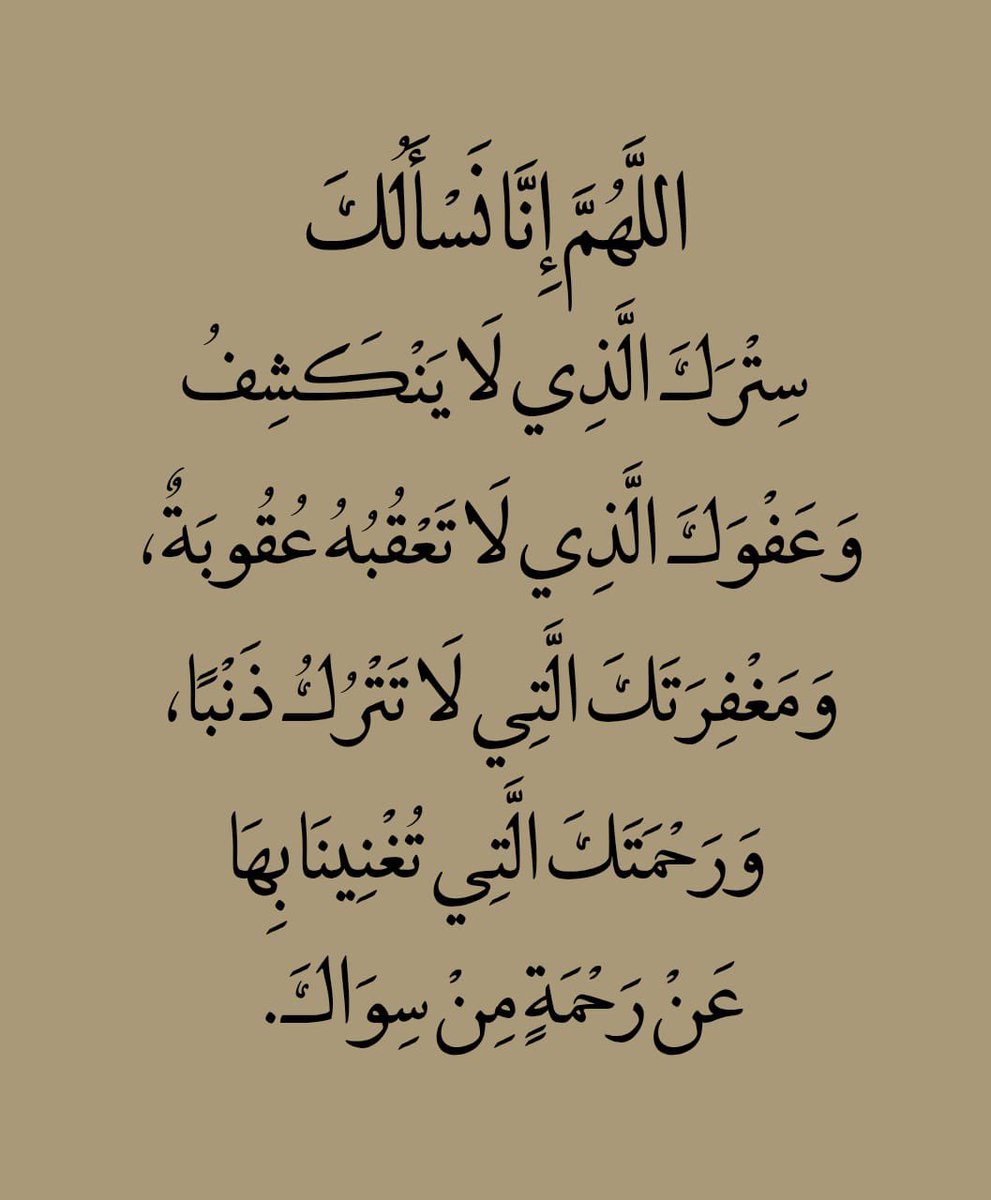 اللَّهُمَّ إِنَّا نَسْأَلُكَ
سِتْرَكَ الَّذِي لَا يَنْكَشِفُ
وَعَفْوَكَ الَّذِي لَا تَعْقُبُهُ عُقُوبَةٌ،
وَمَغْفِرَتَكَ الَّتِي لَا تَتْرُكُ ذَنْبًا،
وَرَحْمَتَكَ الَّتِي تُغْنِينَا بِهَا
عَنْ رَحْمَةٍ مِنْ سِوَاكَ.